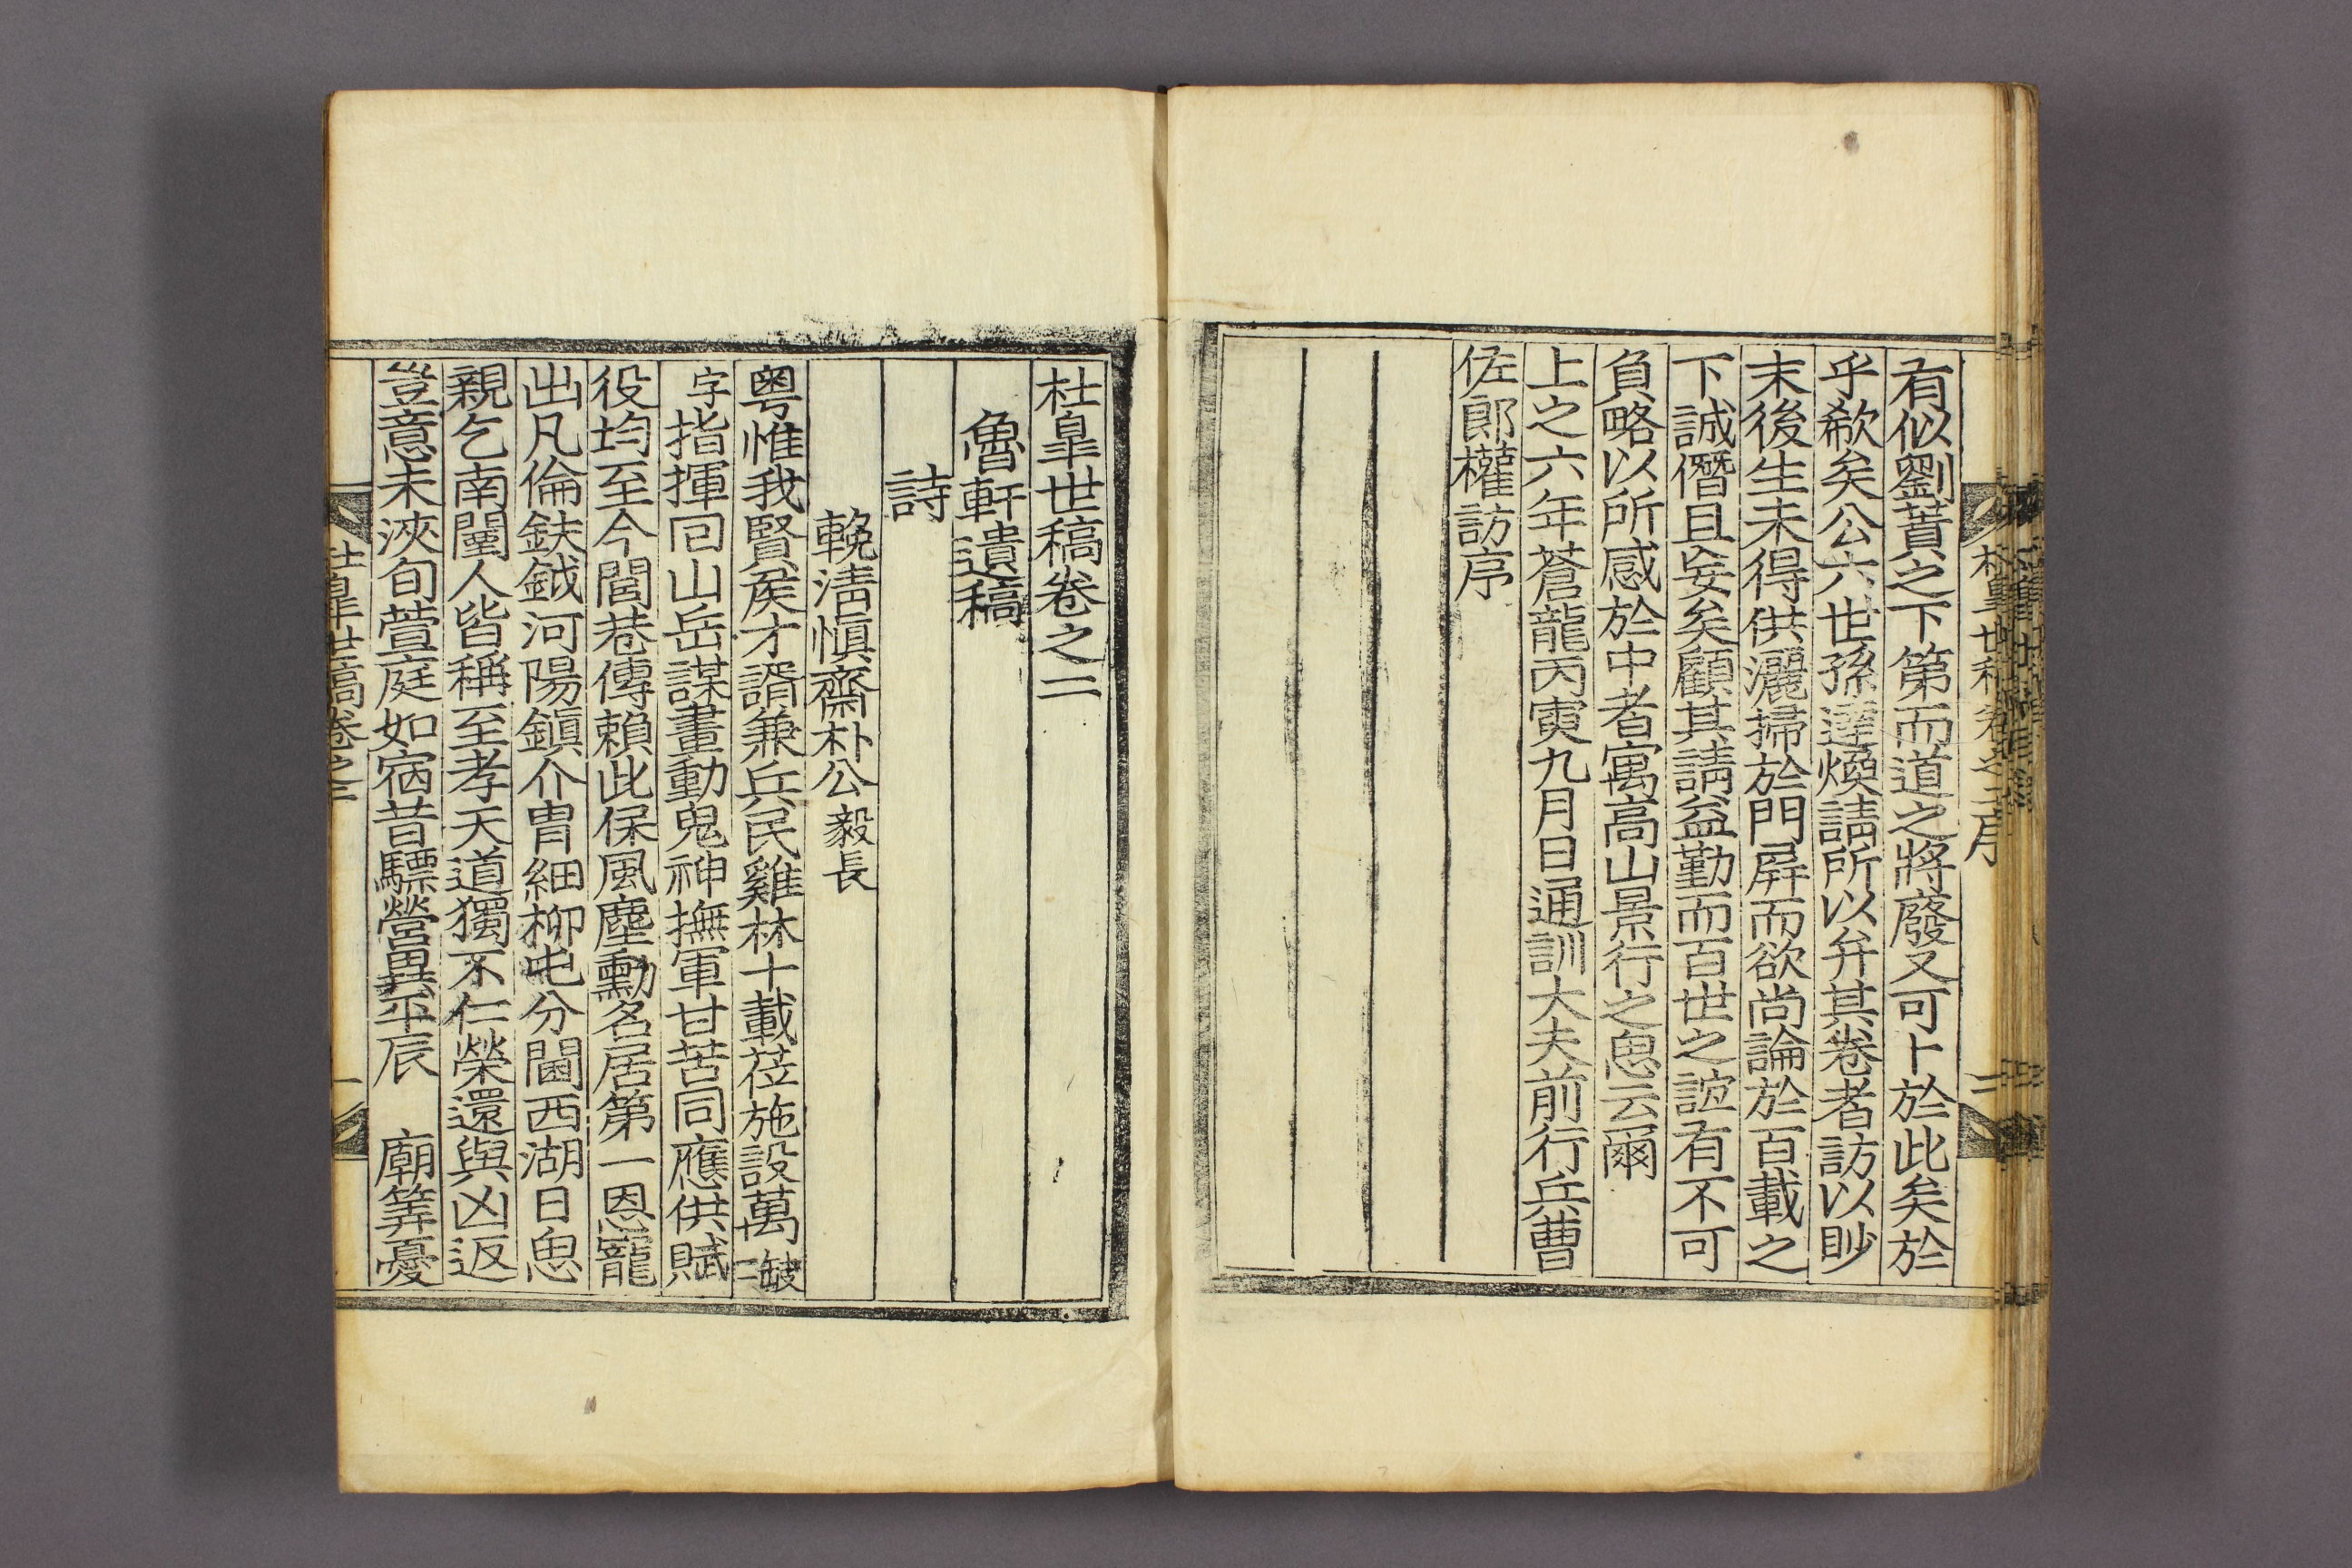 有似劉蕡之下第而道之將廢又可卜於此矣於
乎欷矣公六世孫達煥請所以弁其卷者訪以眇
末後生未得供灑掃於門屛而欲尙論於百載之
下誠僭且妄矣顧其請益勤而百世之誼有不可
負略以所感於中者寓高山景行之思云爾
上之六年蒼龍丙寅九月日通訓大夫前行兵曹
佐郞權訪序
杜皐世稿卷之二
魯軒遺稿
詩
輓淸愼齋朴公毅長
粤惟我賢侯才諝兼兵民雞林十載莅施設萬二缺
字指揮回山岳謀畫動鬼神撫軍甘苦同應供賦
役均至今閭巷傳賴此保風塵勳名居第一恩寵
出凡倫鈇鉞河陽鎭介冑細柳屯分閫西湖日思
親乞南闉人皆稱至孝天道獨不仁榮還與凶返
豈意未浹旬萱庭如宿昔驃營異平辰　廟筭憂
杜皐世稿卷之二　一